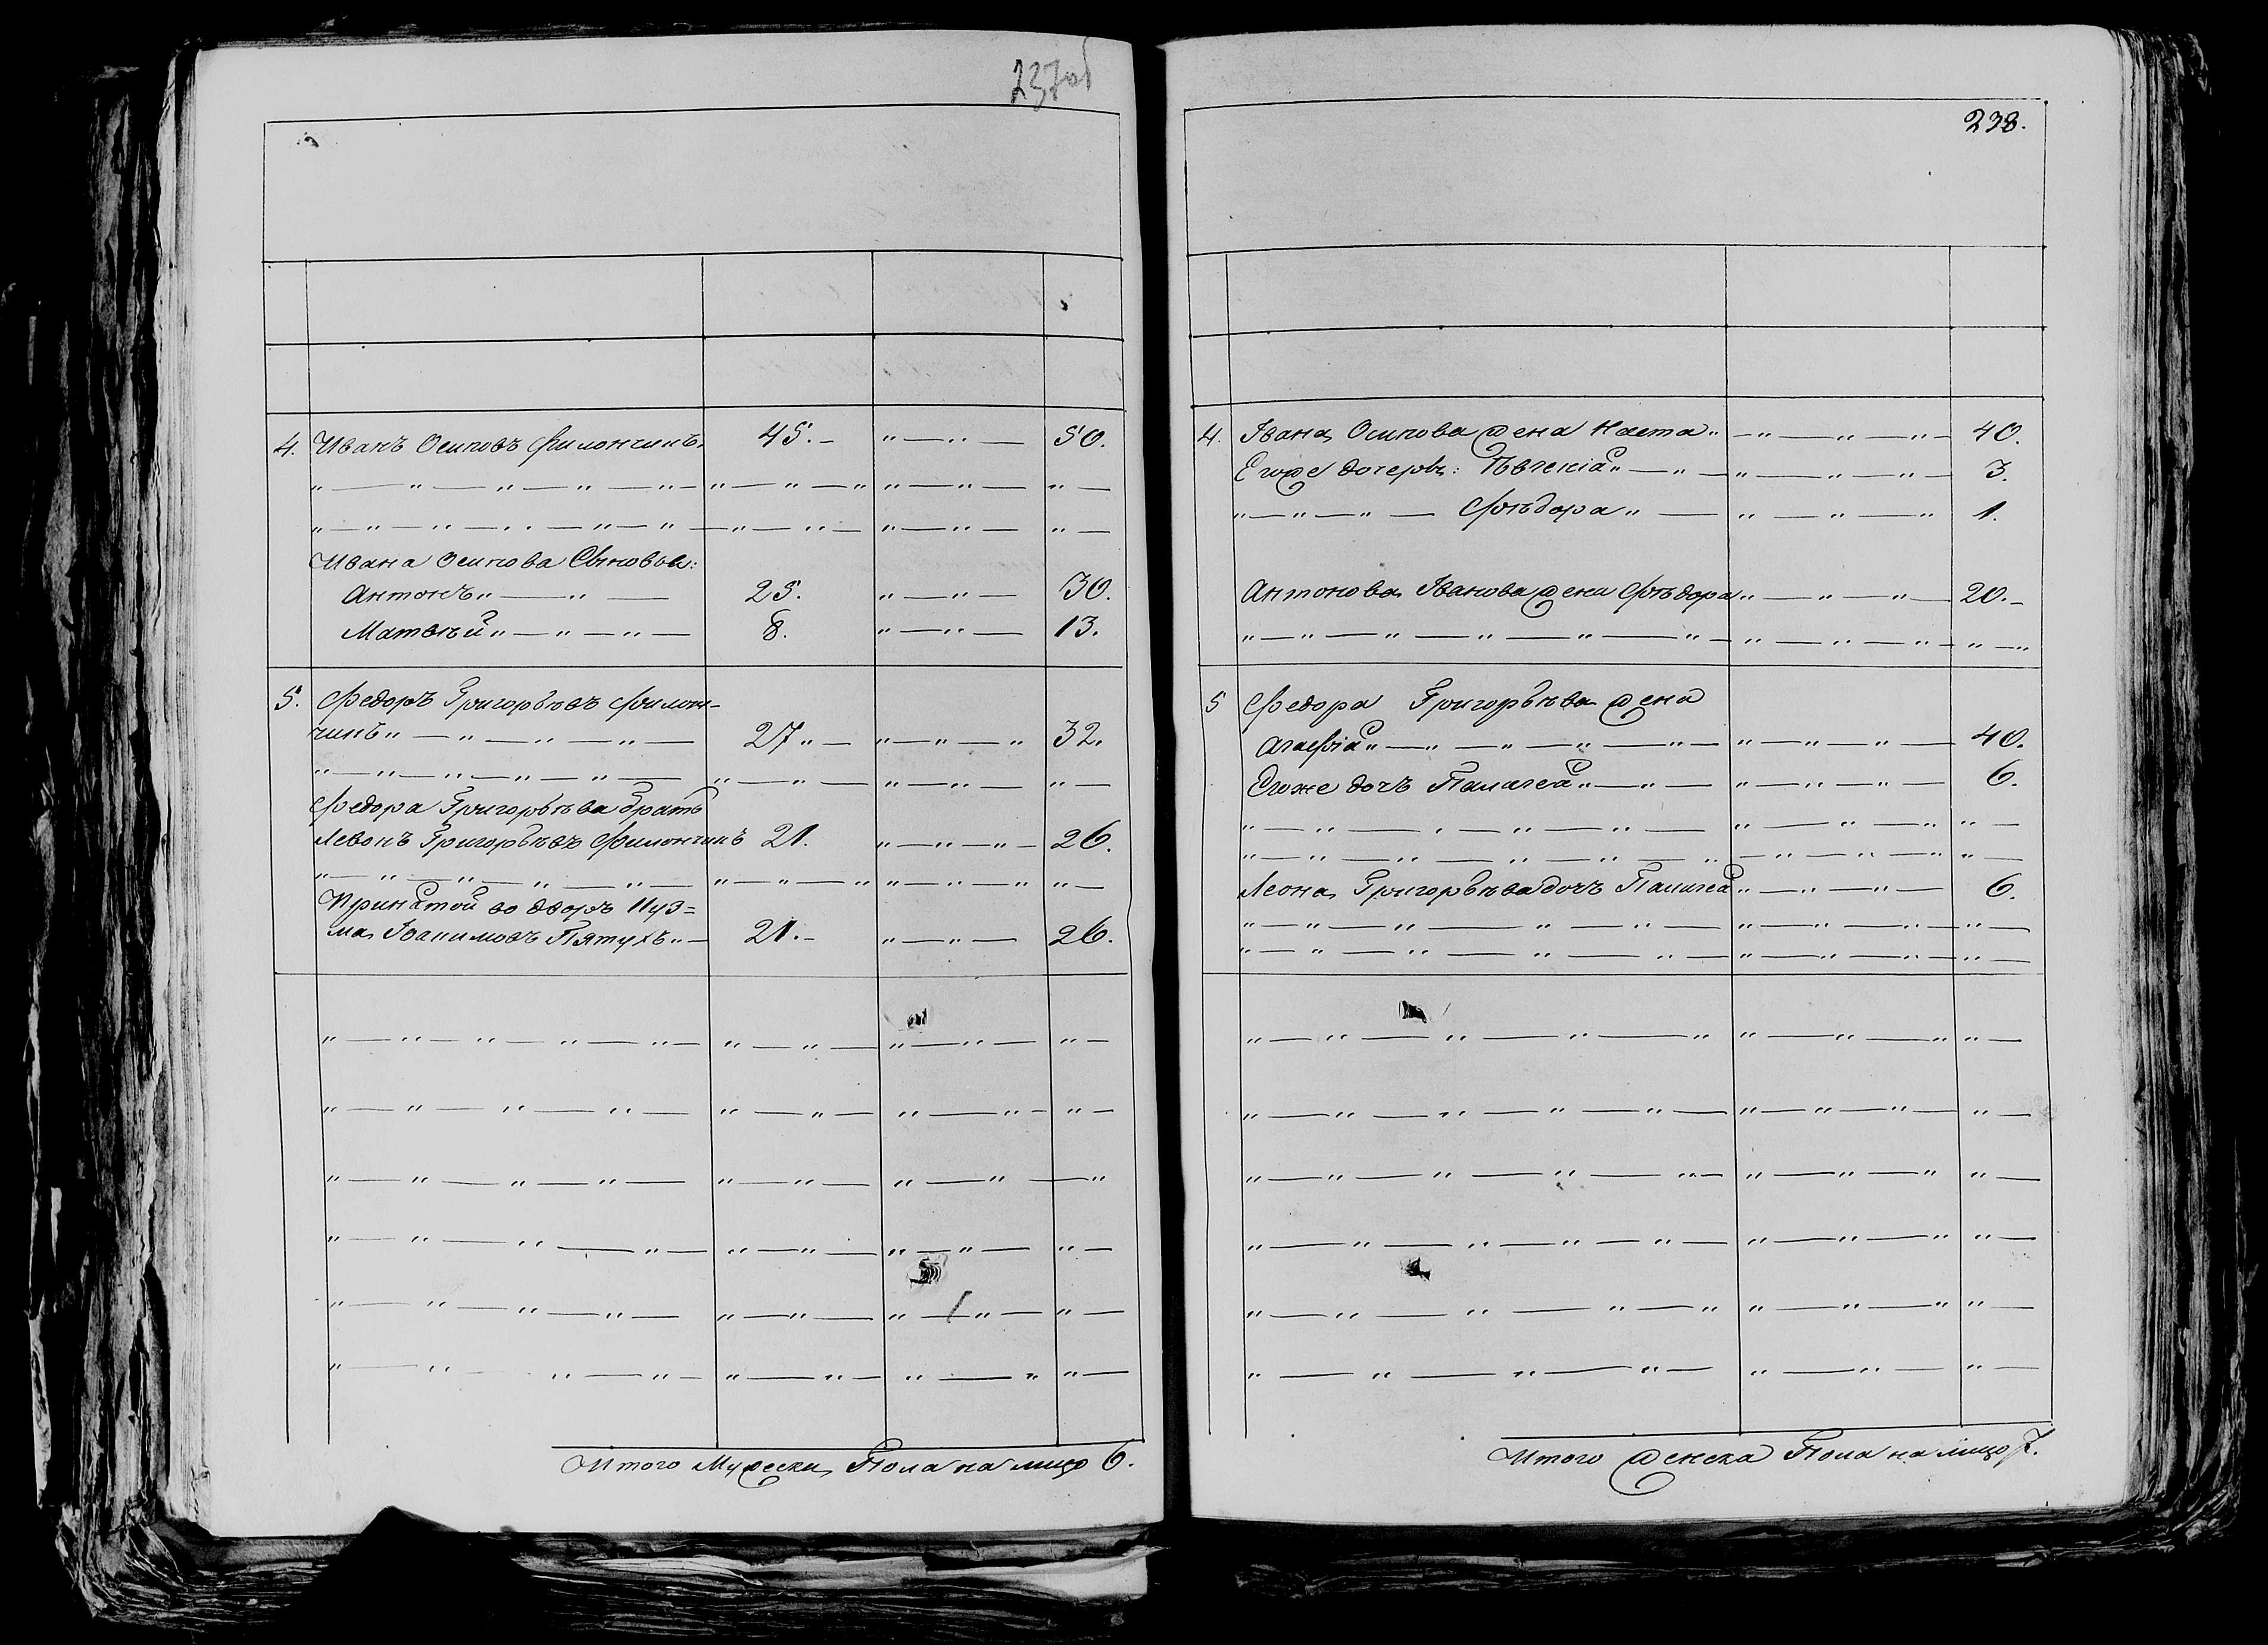 237об
4. Иванъ Осиповъ Филончикъ. 45. 50.
Ивана Осипова Сыновья:
Антонъ 25. 30.
Матвѣй 8. 13.
5. Федоръ Григорьевъ Филон-
чикъ 27 32.
Федора Григорьева братъ
Левонъ Григорьевъ Филончикъ 21. 26.
Принятой во дворъ
Пятухъ 21. 26.
Итого Мужеска Пола на лицо 6.
238.
4. Івана Осипова жена Наста 40.
Егоже дочерь: 3.
Фѣдора 1.
Антонова Іванова жена Фѣдора 20.
5 Федора Григорьева жена
Агафія 40.
Егоже дочь Палагея 6.
Леона Григорьева дочь Палагея 6.
Итого женска Пола на лицо 7.